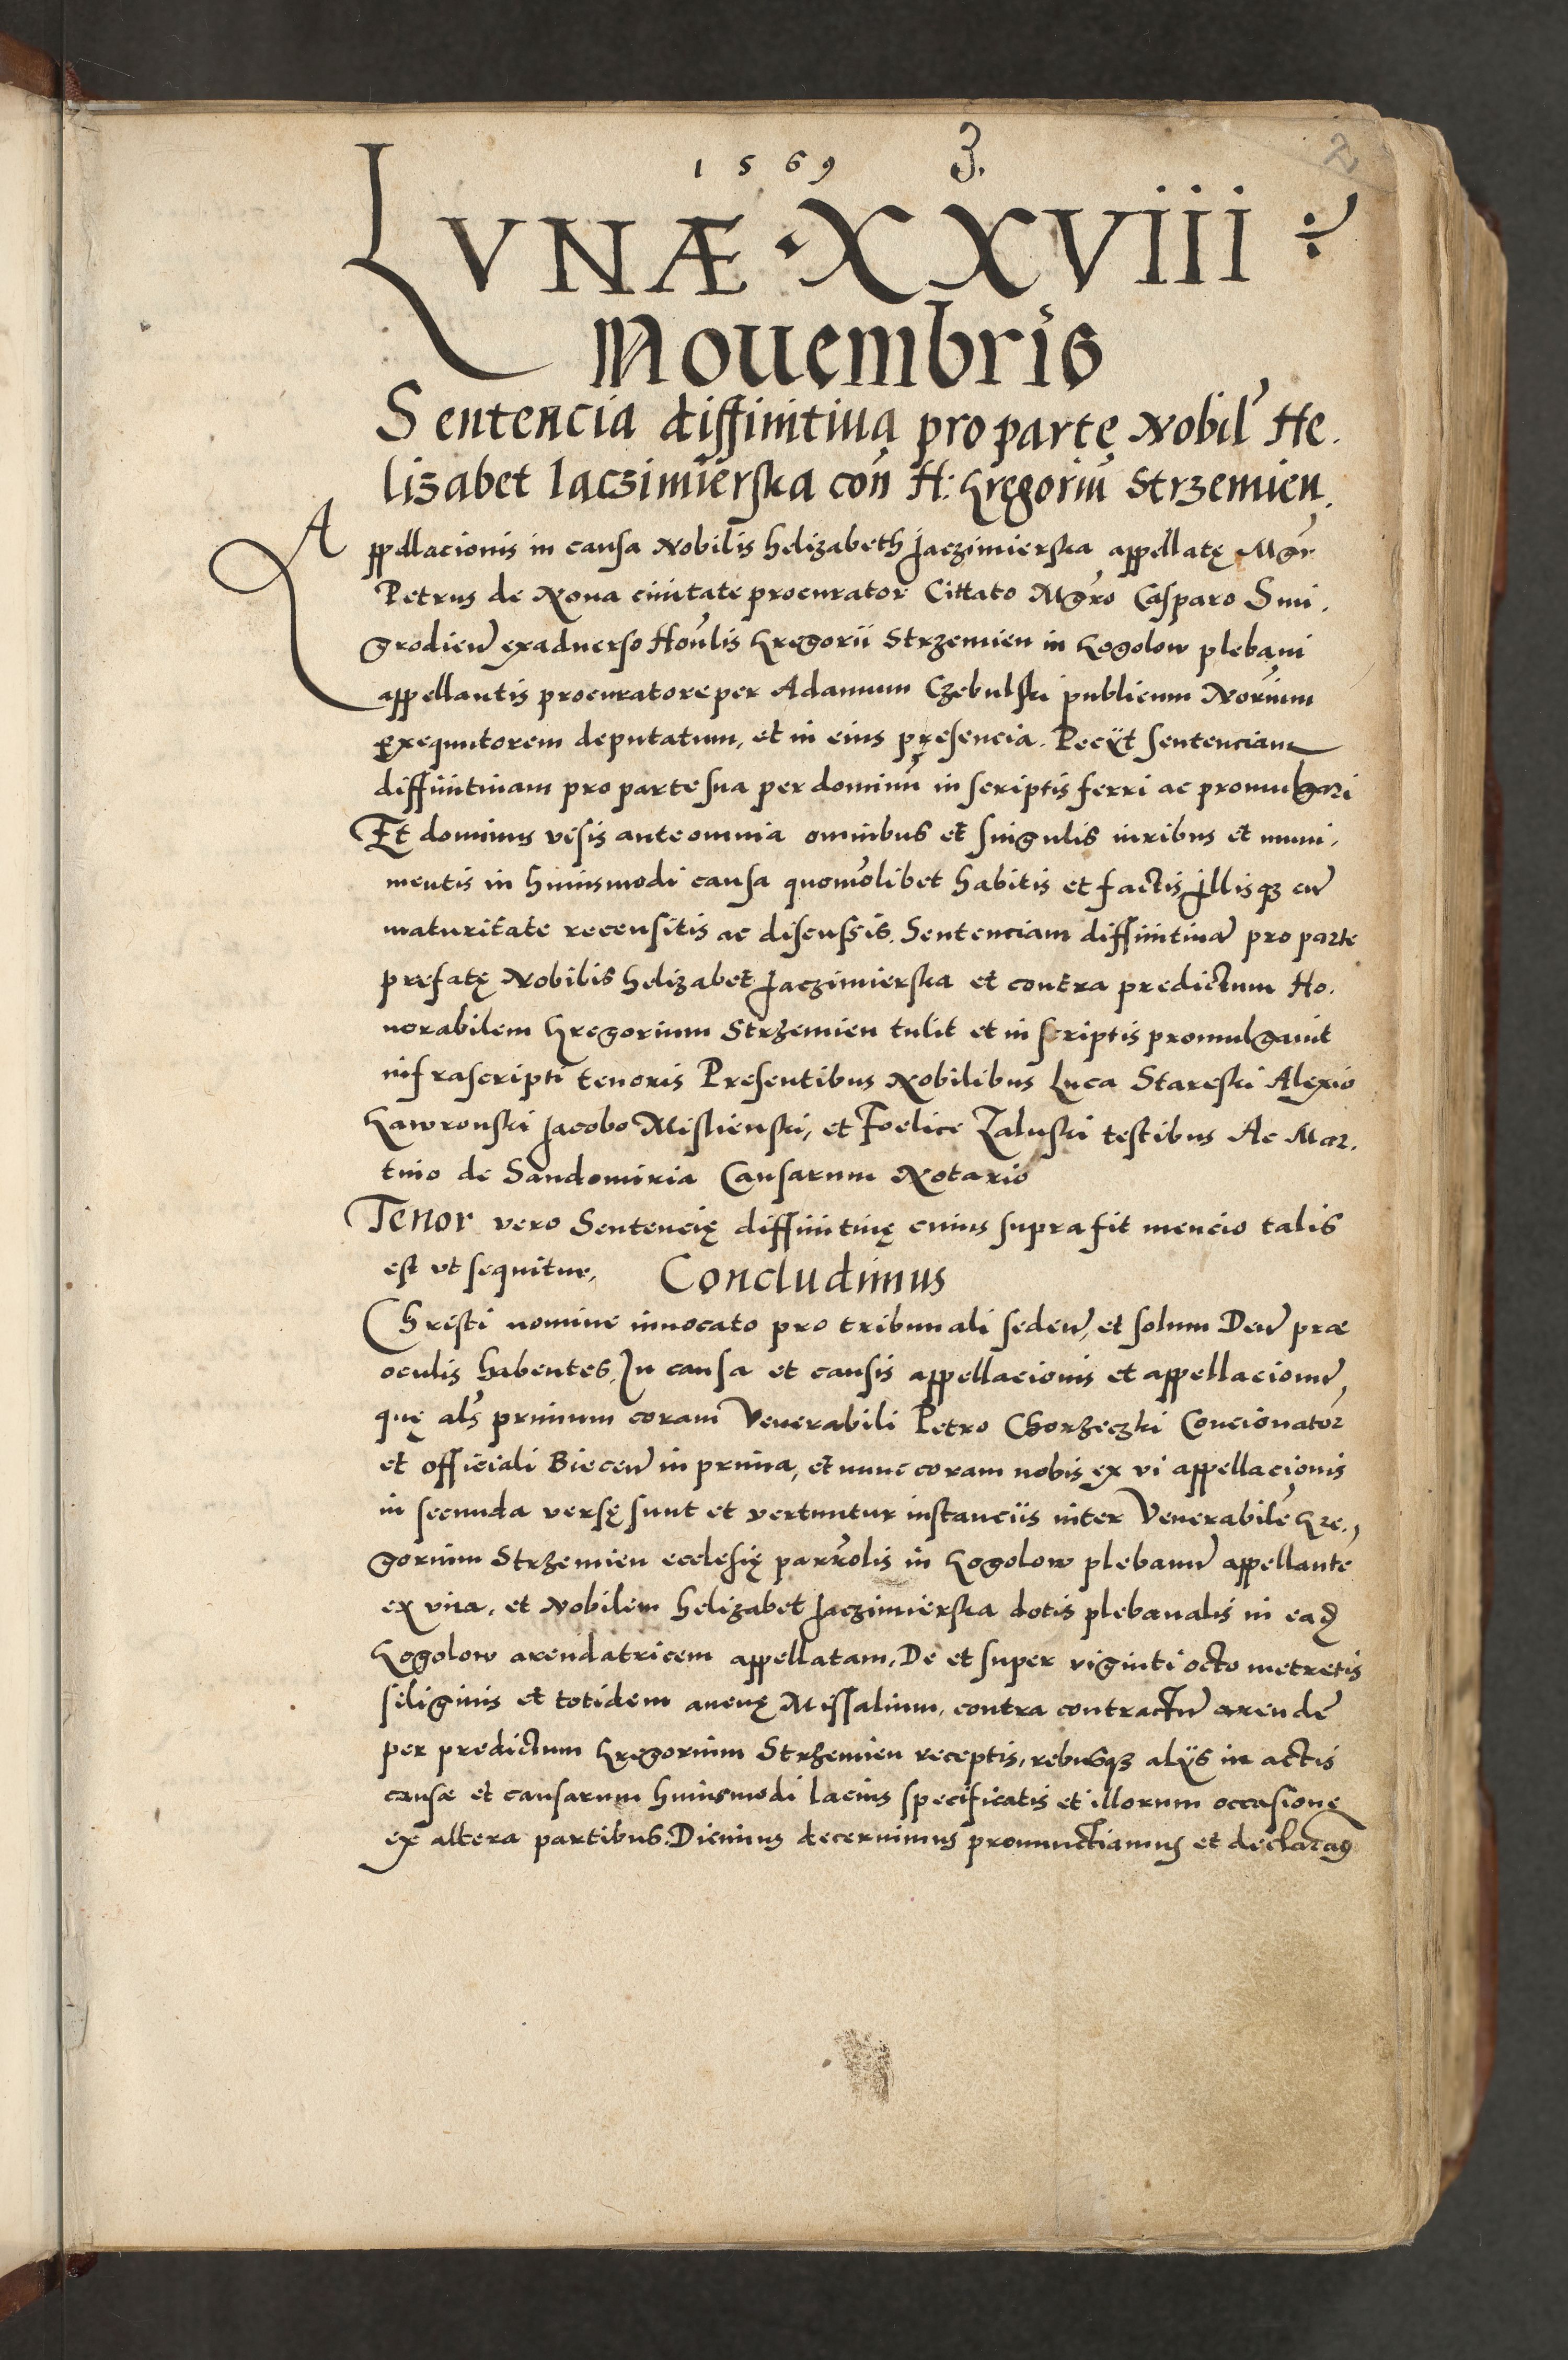 1569 3.
LVNÆ · XXVIII ÷
Nouembris
Sentencia diffinitiua pro parte Nobil He.
lizabet Iaczimierska con H: Gregoriu Strzemien.
Appellacionis in causa Nobilis Helizabeth Jaczimierska appellatę Mgr
Petrus de Noua ciuitate procurator Cittato Mgro Casparo Smi.
grodien exaduerso Honlis Gregorii Strzemien in Gogolow plebani
appellantis procuratore per Adamum Czebulski publicum Norium
exequutorem deputatum, et in eius pręsencia. Peciit sentenciam
diffinitiuam pro parte sua per dominu in scriptis ferri ac promulgari
Et dominus visis ante omnia omnibus et singulis iuribus et muni.
mentis in huiusmodi causa quomolibet habitis et factis, Illisq cu
maturitate recensitis ac discussis. Sentenciam diffinitiua pro parte
prefatę Nobilis Helizabet Jaczimierska et contra predictum Ho.
norabilem Gregorium Strzemien tulit et in scriptis promulgauit
infrascripti tenoris Presentibus Nobilibus Luca Stareski Alexio
Gawronski Jacobo Mislienski, et Foelice Zaluski testibus Ac Mar.
tino de Sandomiria Causarum Notario
Tenor vero Sentencię diffinitiuę cuius supra fit mencio talis
est vt sequitur, Concludimus
Christi nomine inuocato pro tribunali seden, et solum Deu præ
oculis habentes, In causa et causis appellacionis et appellacionu,
quę als primum coram Venerabili Petro Chorzeczki Concionator
et officiali Biecen in prima, et nunc coram nobis ex vi appellacionis
in secunda versę sunt et vertuntur instanciis inter Venerabile Gre.,
gorium Strzemien ecclesię parrolis in Gogolow plebanu appellante
ex vna, et Nobilem Helizabet Jaczimierska dotis plebanalis in ead
Gogolow arendatricem appellatam, De et super viginti octo metretis
siliginis et totidem auenę Missalium, contra contractu arende
per predictum Gregorium Strzemien receptis, rebusq aliis in actis
causæ et causarum huiusmodi lacius specificatis et illorum occasione
ex altera partibus. Dicimus decernimus pronunctiamus et declaramus